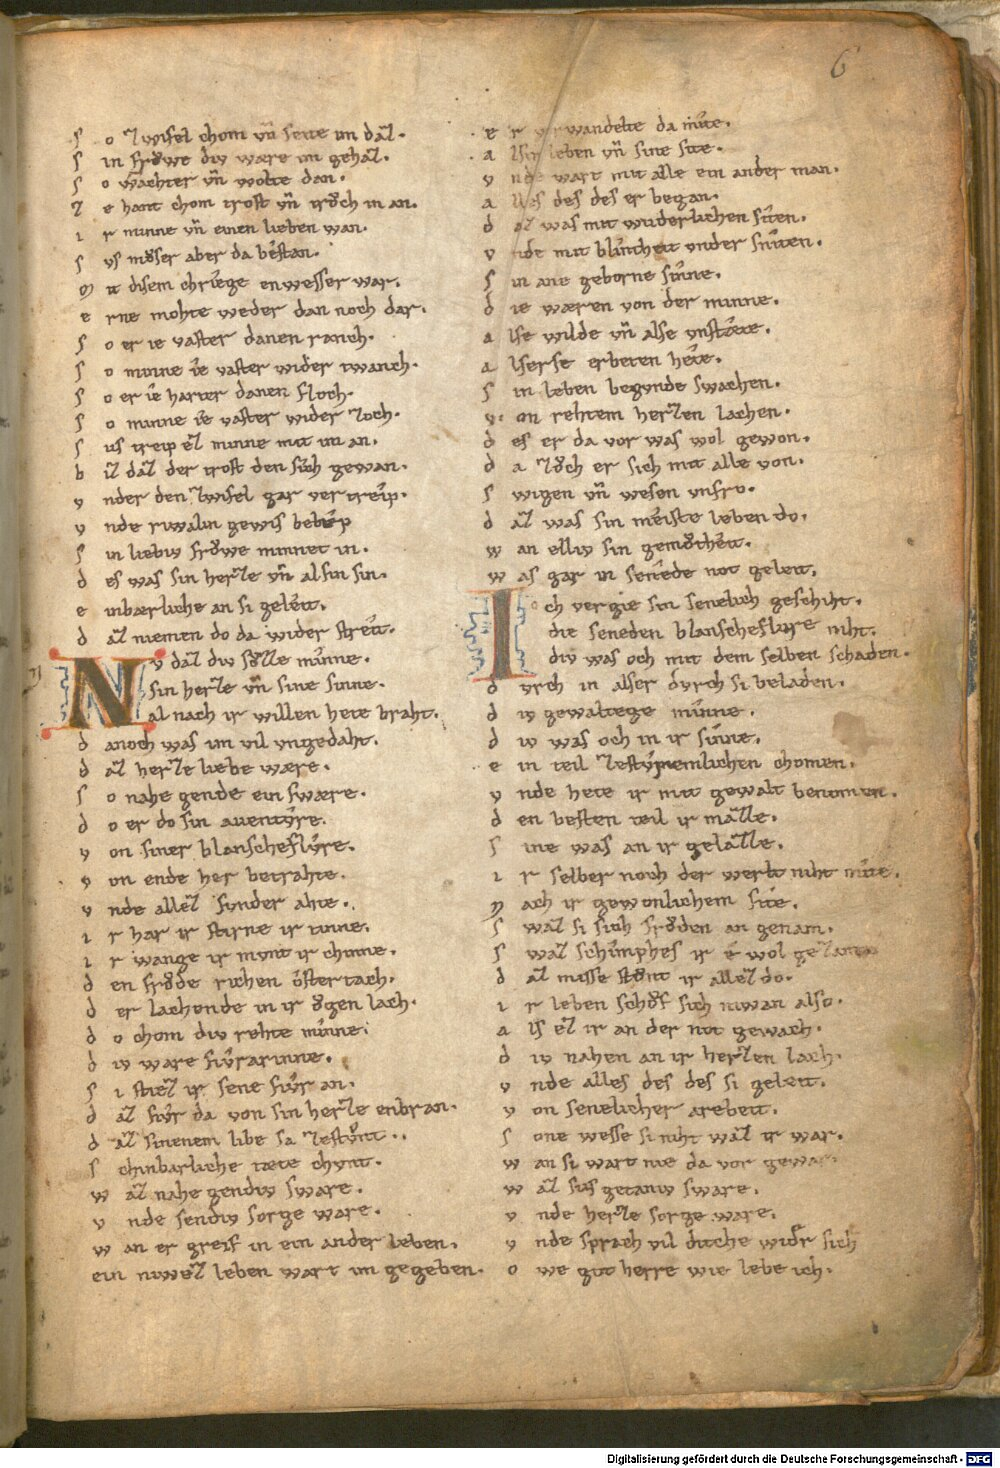 6
so zwifel chom vn̄ seite im daz.
sin frǒwe div ware im gehaz.
so wachter vn̄ wolte dan.
ze hant chom trost vn̄ trǒch in an.
ir minne vn̄ einen lieben wan.
sus mǒser aber da bestan.
mit disem chriege enwesser war.
erne mohte weder dan noch dar.
so er ie vaster danen ranch.
so minne ie vaster wider twanch.
so er ie harter danen floch.
so minne ie vaster wider zoch.
sus treip ez minne mit im an.
biz daz der trost den sich gewan.
vnder den zwifel gar vertreip.
vnde riwalin gewis beleip
sin liebiv frǒwe minnet in.
des was sin herze vn̄ al sin sin.
einbærliche an si geleit.
daz niemen do da wider streit.
Nv daz div sǒzze minne.
sin herze vn̄ sine sinne.
al nach ir willen hete braht.
danoch was im vil vngedaht.
daz herzeliebe wære.
so nahe gende ein swære.
do er do sin auentv̂re.
von siner blanscheflv̂re.
von ende her betrahte.
vnde allez svnder ahte.
ir har ir stirne ir tinne.
ir wange ir mvnt ir chinne.
den frǒde richen ostertach.
der lachende in ir ǒgen lach.
do chom div rehte minne.
div ware fivrarinne.
si stiez ir sene fivr an.
daz fivr da von sin herze enbran.
daz sinenem libe sa zestvnt.
schinbarliche tæte chvnt.
waz nahe gendiv sware.
vnde sendiv sorge ware.
wan er greif in ein ander leben.
ein niwez leben wart im gegeben.
er verwandelte da mite.
al sin leben vn̄ sine site.
vnde wart mit alle ein ander man.
alles des des er began.
daz was mit wnderlichen siten.
vnde mit blintheit vnder sniten.
sin ane geborne sinne.
die wæren von der minne.
alse wilde vn̄ alse vnstæte.
alser se erbeten hete.
sin leben begvnde swachen.
von rehtem herzen lachen.
des er da vor was wol gewon.
da zǒch er sich mit alle von.
swigen vn̄ wesen vnfro.
daz was sin meiste leben do.
wan elliv sin gemǒtheit.
was gar in senede not geleit.
Ich vergie sin senelich geschiht.
die seneden blanscheflvre niht.
div was och mit dem selben schaden.
dvrch in alser dvrch si beladen.
div gewaltege minne.
div was och in ir sinne.
ein teil zestvrmenlichen chomen.
vnde hete ir mit gewalt benomen.
den besten teil ir mazze.
sine was an ir gelazze.
ir selber noch der werlt niht mite.
nach ir gewonlichem site.
swaz si sich frǒden an genam.
swaz schimphes ir e wol gezam
daz misse stǒnt ir allez do.
ir leben schǒf sich niwan also.
als ez ir an der not gewach.
div nahen an ir herzen lach.
vnde alles des des si geleit.
von senelicher arebeit.
sone wesse si niht waz ir war.
wan si wart nie da vor gewar
waz svs getaniv sware.
vnde herze sorge ware.
vnde sprach vil dicche wider sich
owe got herre wie lebe ich.
Digitalisierung gefördert durch die Deutsche Forschungsgemeinschaft - DFG